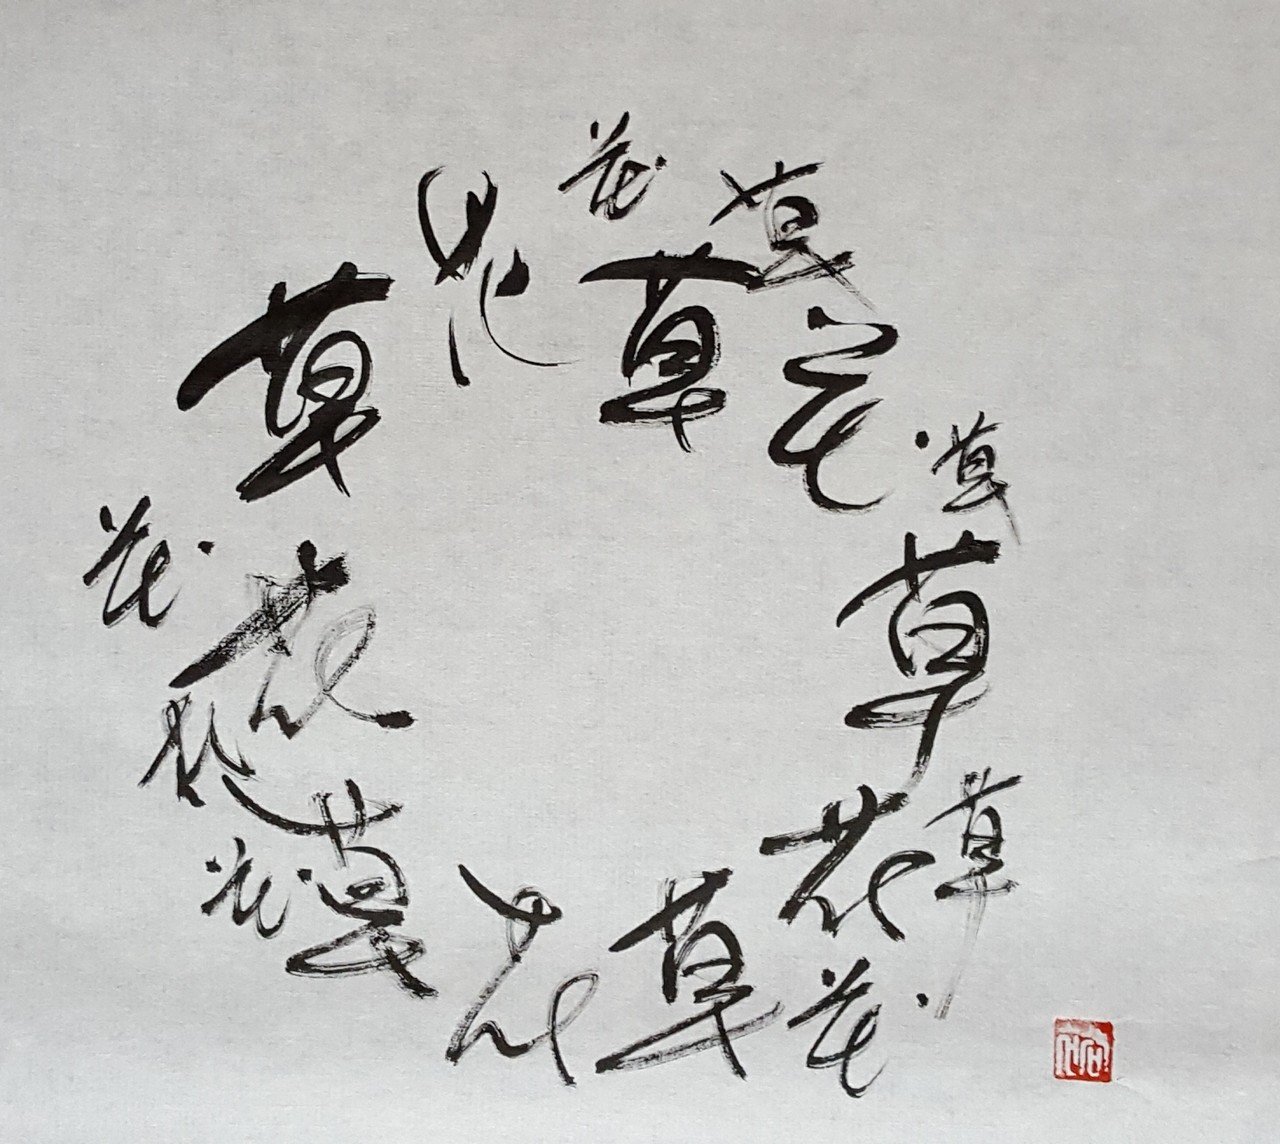 花
草
草
花
草
草
草
花
花
草
花
草
花
花
花
花
草
花